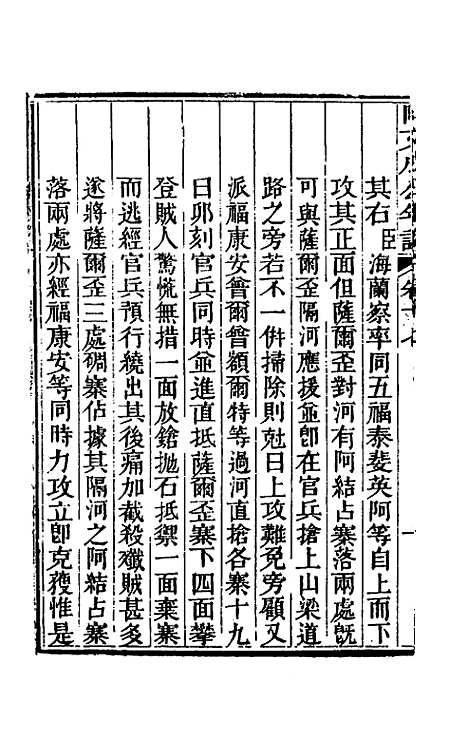 其右臣海蘭察率同五福泰斐英阿等自上而下
攻其正面但薩爾歪對河有阿結占寨落兩處旣
可與薩爾歪隔河應援並卽在官兵搶上山梁道
路之旁若不一併掃除則尅日上攻難免旁顧又
派福康安曾爾曾額爾特等過河直搶各寨十九
日卯刻官兵同時並進直抵薩爾歪寨下四面攀
登賊人驚慌無措一面放鎗抛石抵禦一面棄寨
而逃經官兵預行繞出其後痛加截殺殲賊甚多
遂將薩爾歪三處碉寨佔據其隔河之阿結占寨
落兩處亦經福康安等同時力攻立卽克𫉬惟是